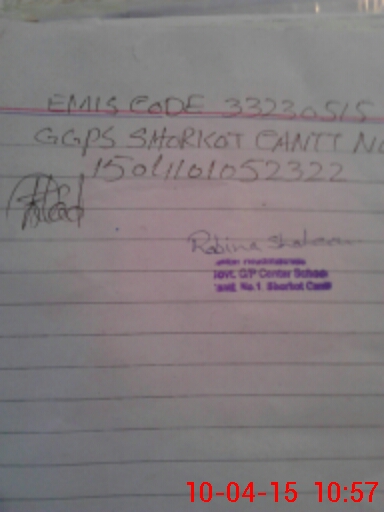 EMIS CODE 33230515
GGPS SHORKOT CANTT NO
1501101052322
Robina Shaheen
Govt. G/P Center School
Cantt. No.1 Shorkot Cantt
10-04-15 10:57